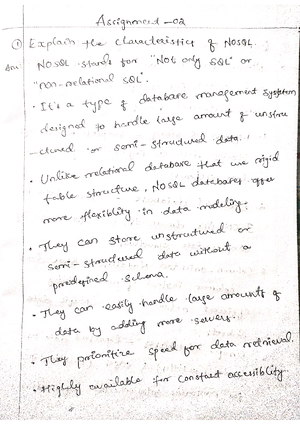 Assignment-02
① Explain the characteristics of NOSQL.
Ans NOSQL stands for "Not only SQL" or
"non-relational SQL".
• It's a type of database management system
designed to handle large amount of unstru
-ctured or semi-structured data.
• Unlike relational database that use rigid
table structure, NOSQL databases offer
more flexiblity in data modeling.
• They can store unstructured or
semi-structured data without a
predefined schema.
• They can easily handle large amounts of
data by adding more servers.
• They prioritize speed for data retrieval.
• Highly available for constant accessiblity.